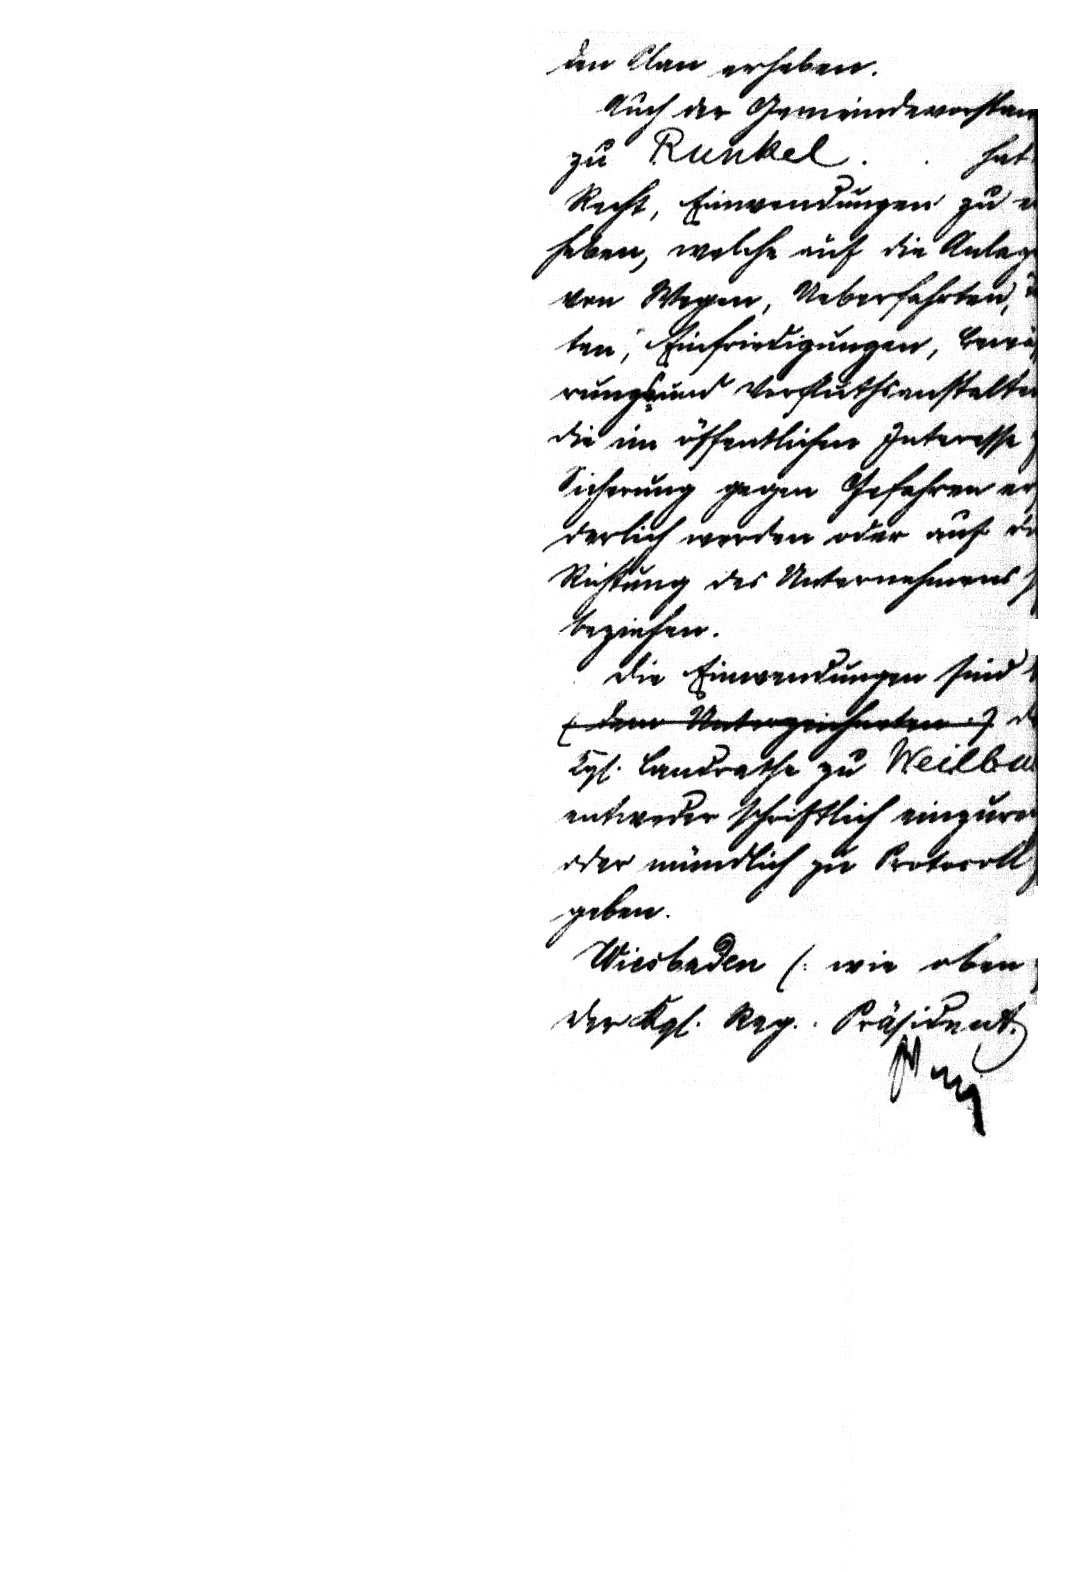 den Plan erheben.
Auch der Gemeindevorstan
zu Runkel. . hat
Recht, Einwendungen zu e
heben, welche auf die Anlag
von Wegen, Ueberfahrten,
ten, Einfriedigungen, Bewäs
rungs und Vorfluthsanstalte
die im öffentlichen Interesse
Sicherung gegen Gefahren er
derlich werden oder auf di
Richtung des Unternehmens
beziehen.
Die Einwendungen sind
(dem Unterzeichneten.) de
Kgl. Landrathe zu Weilbu
entweder schriftlich einzure
oder mündlich zu Protocoll
geben.
Wiesbaden (: wie oben
Der Kgl. Reg. Präsident.